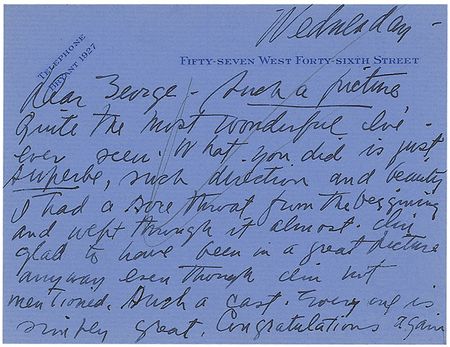 Wednesday -
TELEPHONE
BRYANT 1927
FIFTY-SEVEN WEST FORTY-SIXTH STREET
Dear George - Such a picture
Quite the most wonderful I've
ever seen! What you did is just
superbe, such direction and beauty
I had a sore throat from the beginning
and wept through it almost. I'm
glad to have been in a great picture
anyway even though I'm not
mentioned. Such a cast. Every one is
simply great. Congratulations again